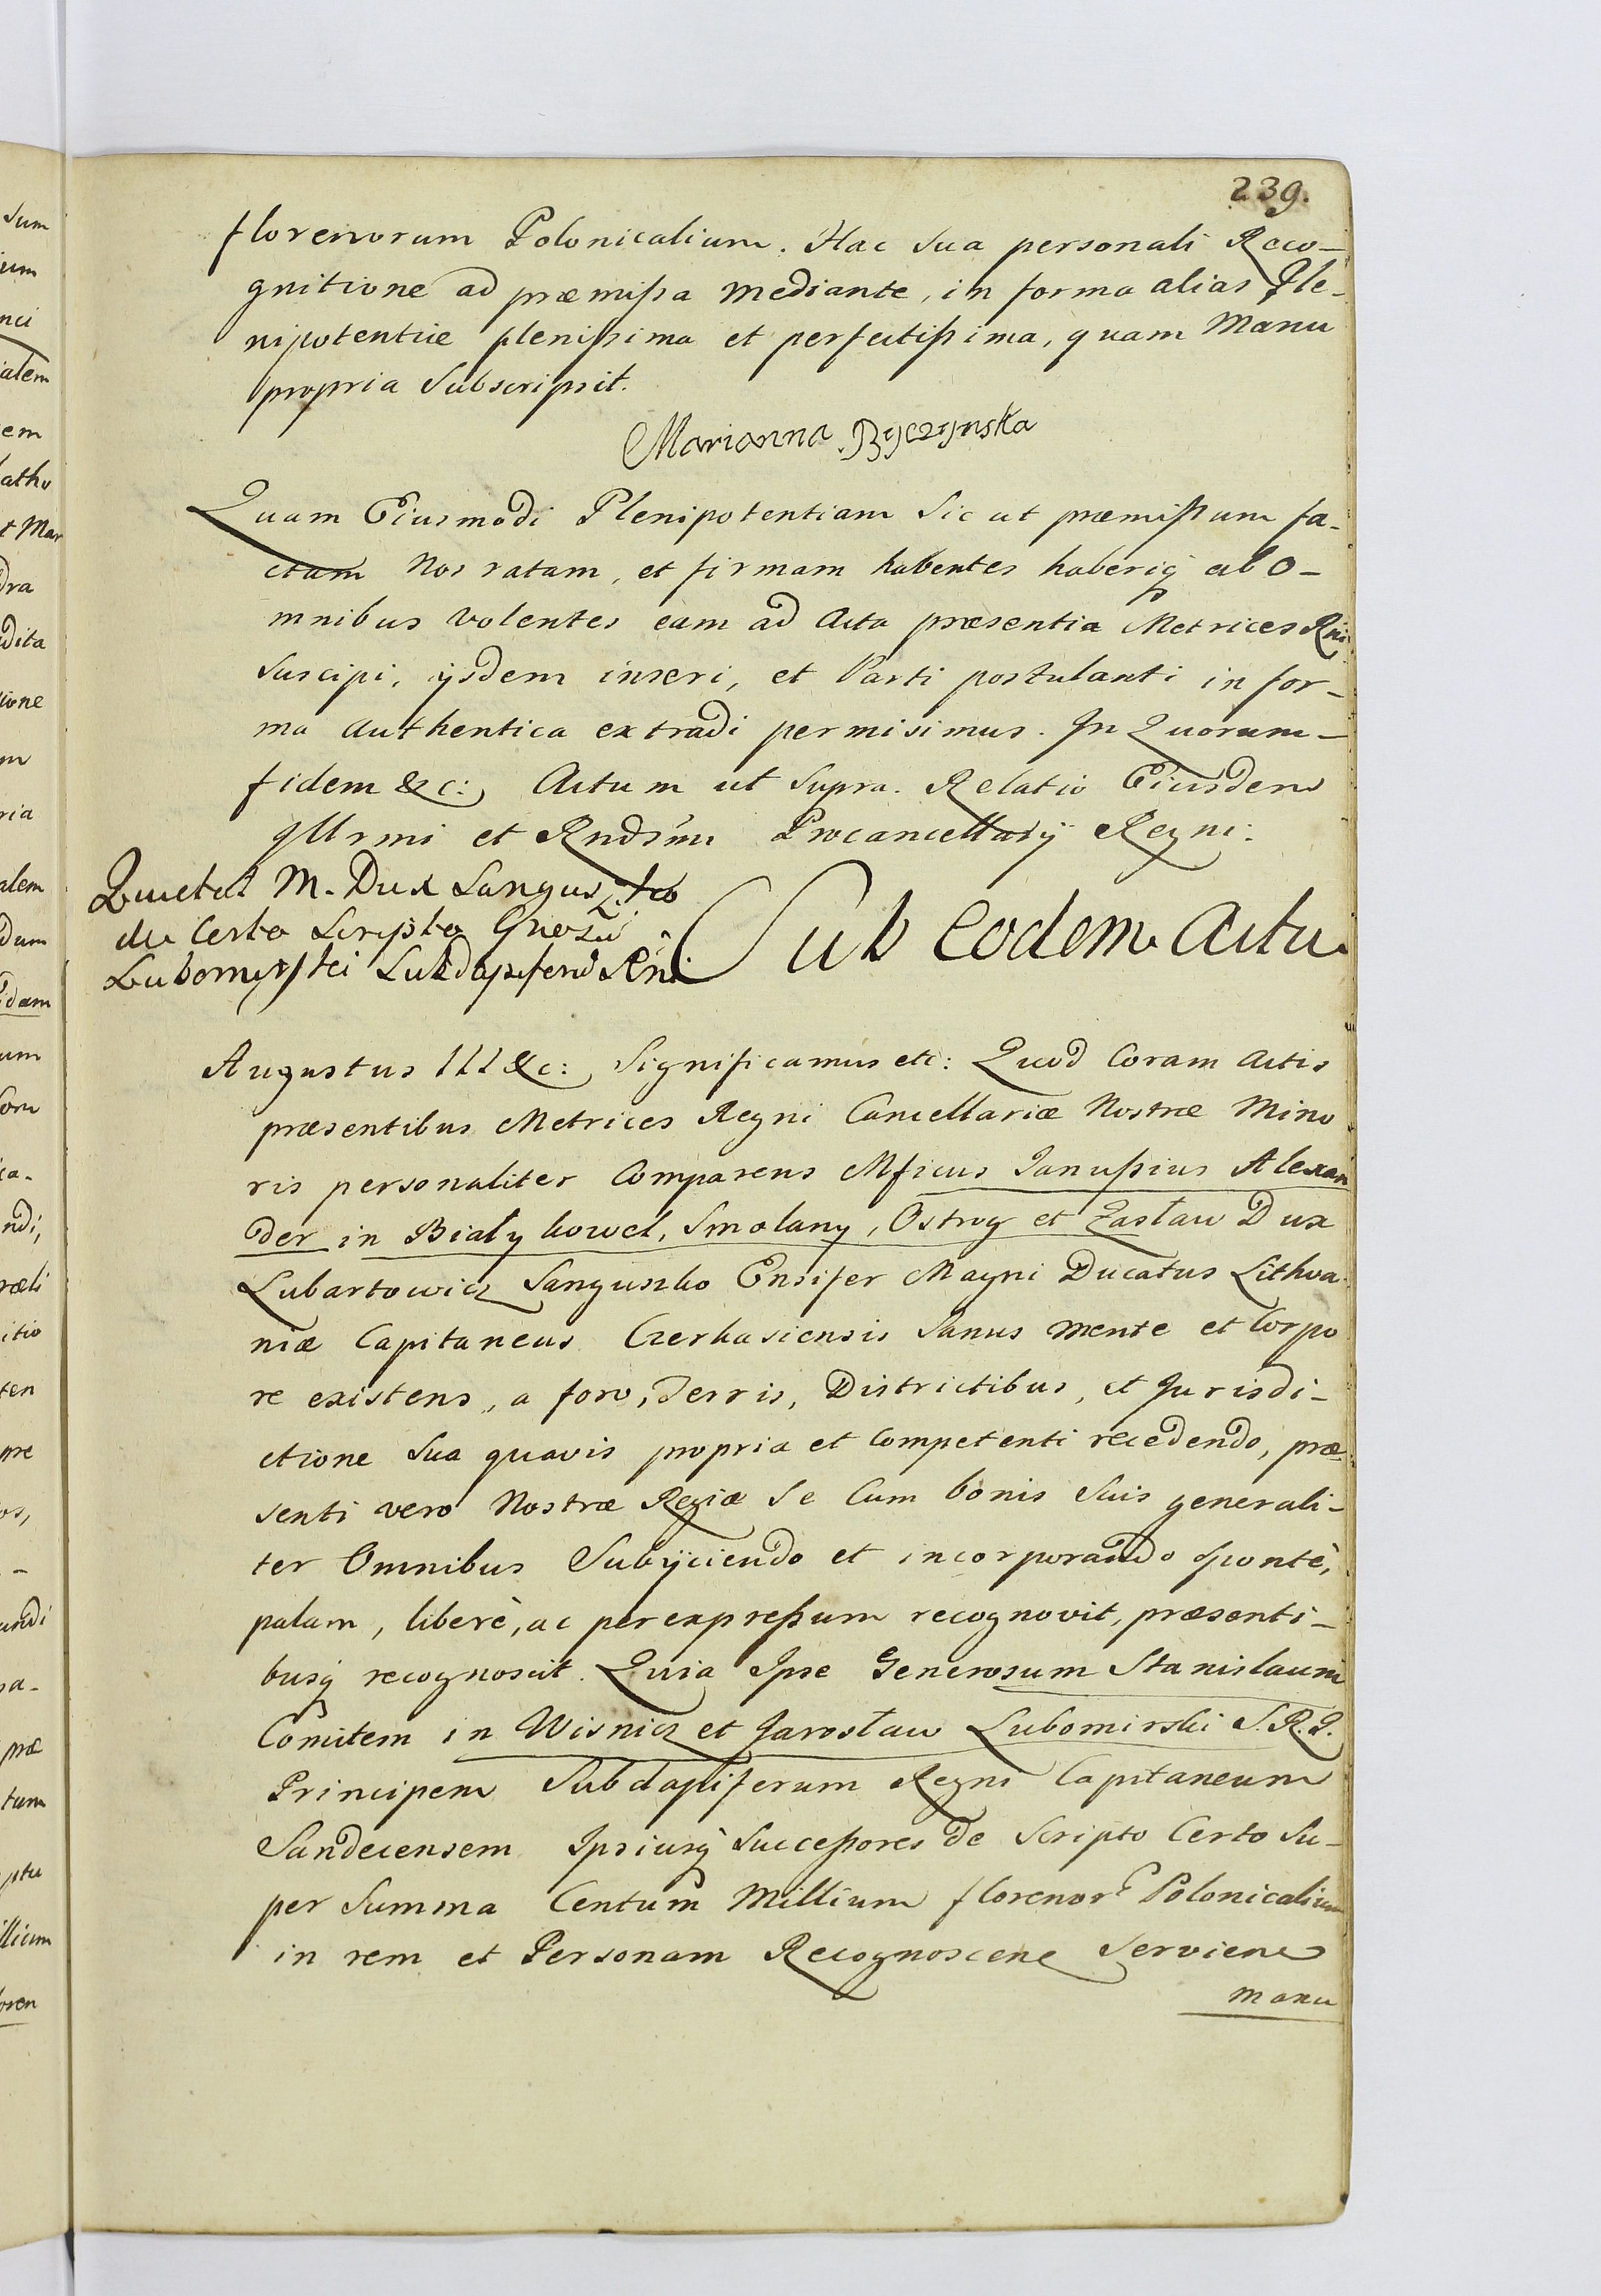 239.
florenorum Polonicalium. Hac Sua personali Reco-
gnitione ad præmißa mediante, in forma alias Ple-
nipotentiæ plenißima et perfectißima, quam Manu
propria Subscripsit.
Marianna Byczynska
Quam Eiusmodi Plenipotentiam Sic ut præmißum fa-
ctam Nos ratam, et firmam habentes haberiq ab O-
mnibus volentes eam ad Acta præsentia Metrices Rni
Suscipi, ijsdem inseri, et Parti postulanti in for-
ma authentica extradi permisimus. In Quorum-
fidem &c: Actum ut Supra. Relatio Eiusdem
Illrmi et Rndsmi Procancellarij Regni.
Quietat M. Dux Sanguszko
de Certo Scripto Gnosū
Lubomirski Subdapiferū Rni
Sub Eodem Actu
Augustus III &c: Significamus etc: Quod Coram Actis
præsentibus Metrices Regni Cancellariæ Nostræ Mino
ris personaliter Comparens Mficus Janußius Alexan
der in Biały kowel, Smolany, Ostrog et Zasław Dux
Lubartowicz Sanguszko Ensifer Magni Ducatus Lithva
niæ Capitaneus Czerkasiensis Sanus mente et Corpo
re existens, a foro, Terris, Districtibus, et Jurisdi-
ctione Sua quavis propria et Competenti recedendo, præ
senti vero Nostræ Regiæ Se Cum bonis Suis generali-
ter Omnibus Subijciendo et incorporando spontè,
palam, liberè, ac per expreßum recognovit, præsenti-
busq recognoscit. Quia Ipse Generosum Stanislaum
Comitem in Wisnicz et Jarosław Lubomirski S.R.I.
Principem Subdapiferum Regni Capitaneum
Sandecensem Ipsiusq Succeßores de Scripto Certo Su-
per Summa Centum Millium florenor Polonicalium
in rem et Personam Recognoscene Serviene
manu